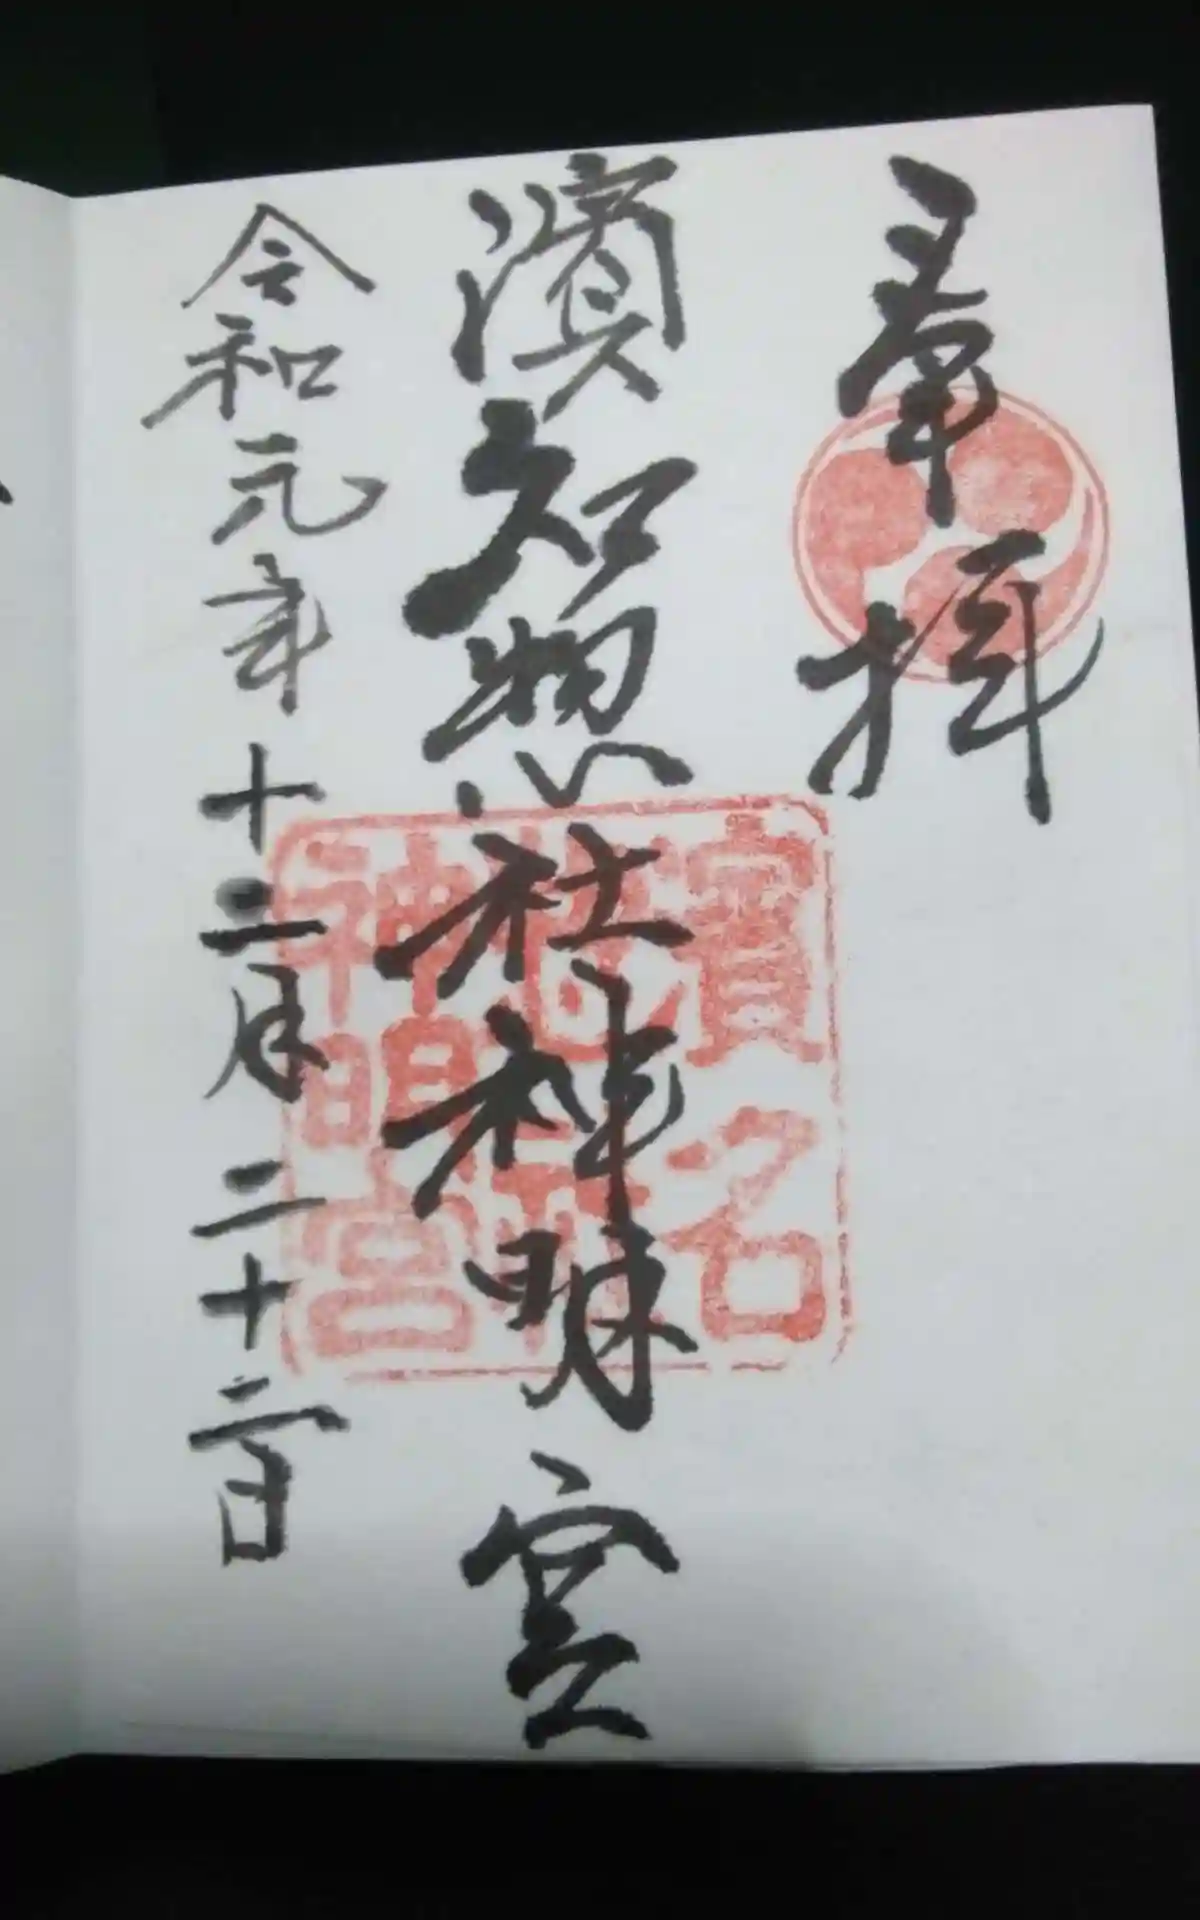 奉拝
濱名惣社神明宮
令和元年十二月二十二日
賓名
惣社
神明宮